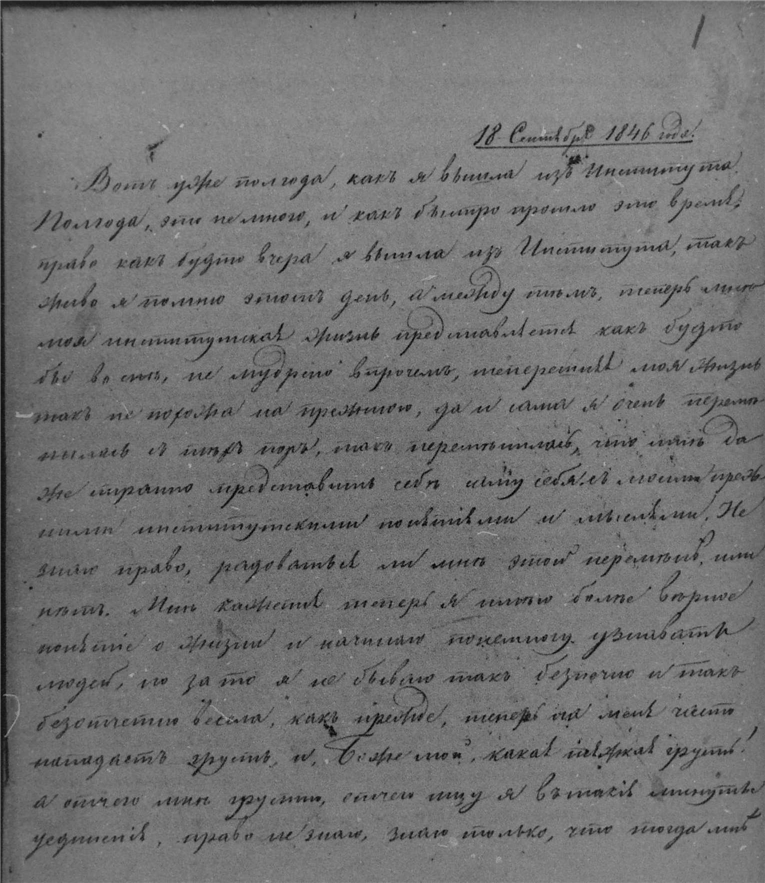 1
18 Сентября 1846 года.
Вотъ уже полгода, какъ я вышла изъ Института.
Полгода, это не много, и какъ быстро прошло это время,
право какъ будто вчера я вышла изъ Института, такъ
живо я помню этотъ день, а между тѣмъ, теперь мнѣ
моя институтская жизнь представляется какъ будто
бы во снѣ, не мудрено впрочемъ, теперешняя моя жизнь
такъ не похожа на прежнюю, да и сама я очень перемѣ
нилась съ тѣхъ поръ, такъ перемѣнилась, что мнѣ да
же странно представить себѣ саму себя съ моими преж
ними институтскими понятіями и мыслями. Не
знаю право, радоваться ли мнѣ этой перемѣнѣ, или
нѣтъ. Мнѣ кажется теперь я имѣю болѣе вѣрное
понятіе о жизни и начинаю понемногу узнавать
людей, но за то я не бываю такъ безпечно и такъ
безотчетно весела, какъ прежде, теперь на меня часто
нападаетъ грусть, и, Боже мой, какая тяжкая грусть!
а отчего мнѣ грустно, отчего ищу я въ такія минуты
уединенія, право не знаю, знаю только, что тогда мнѣ